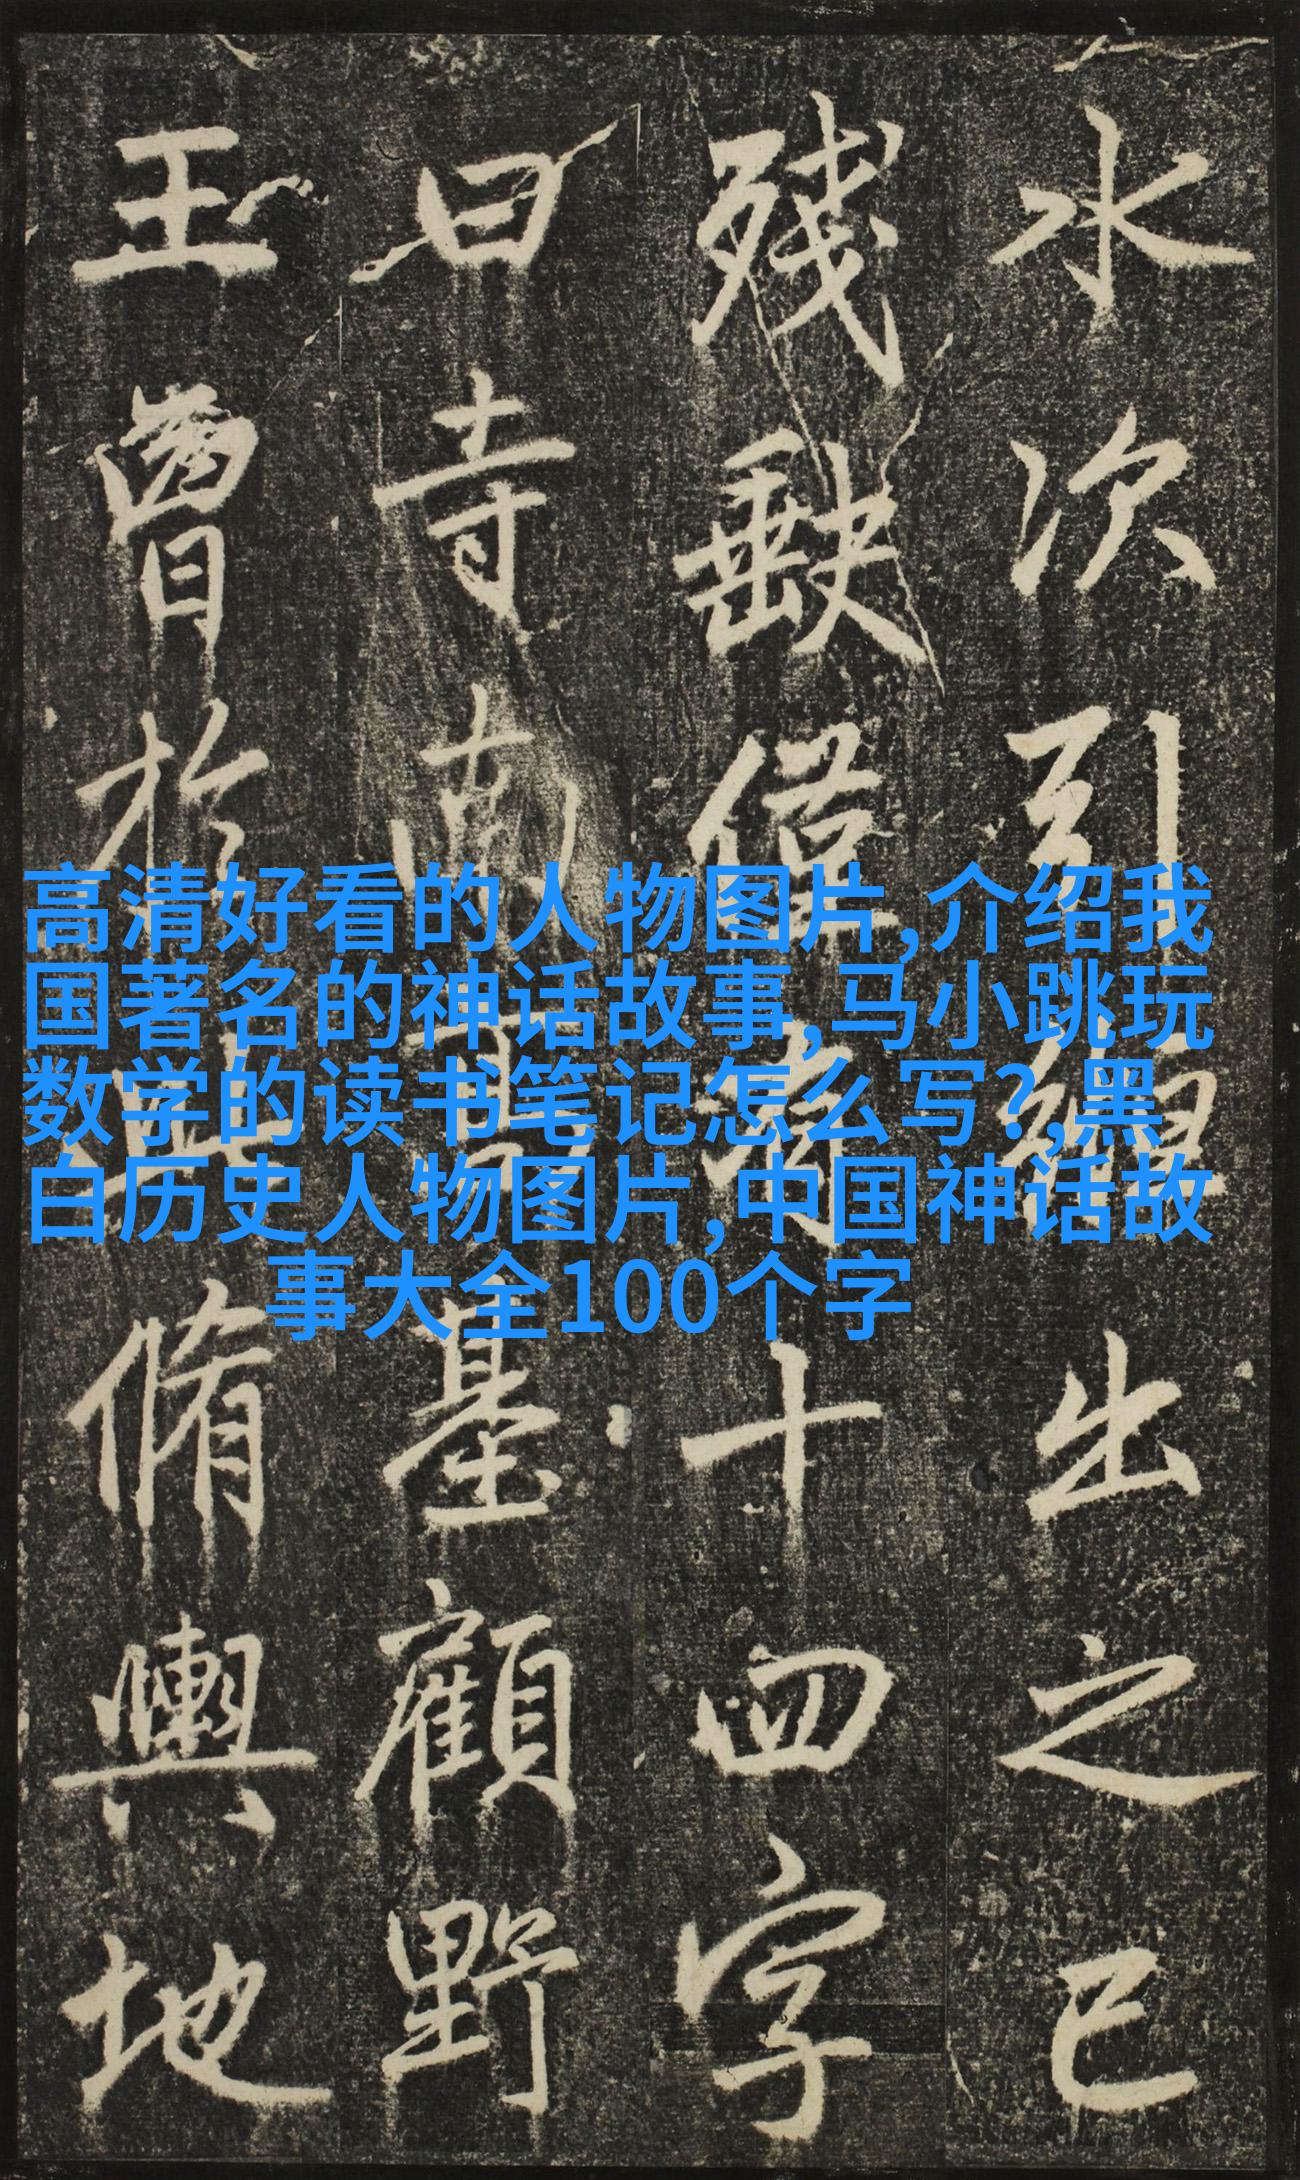 高清好看的人物图片,介绍我
国著名的神话故事,马小跳玩
数学的读书笔记怎么写?,黑
白历史人物图片,中国神话故
事大全100个字
水次引出之已
殘缺僅十四字
曰寺南高基顧野
王曾於此脩輿地